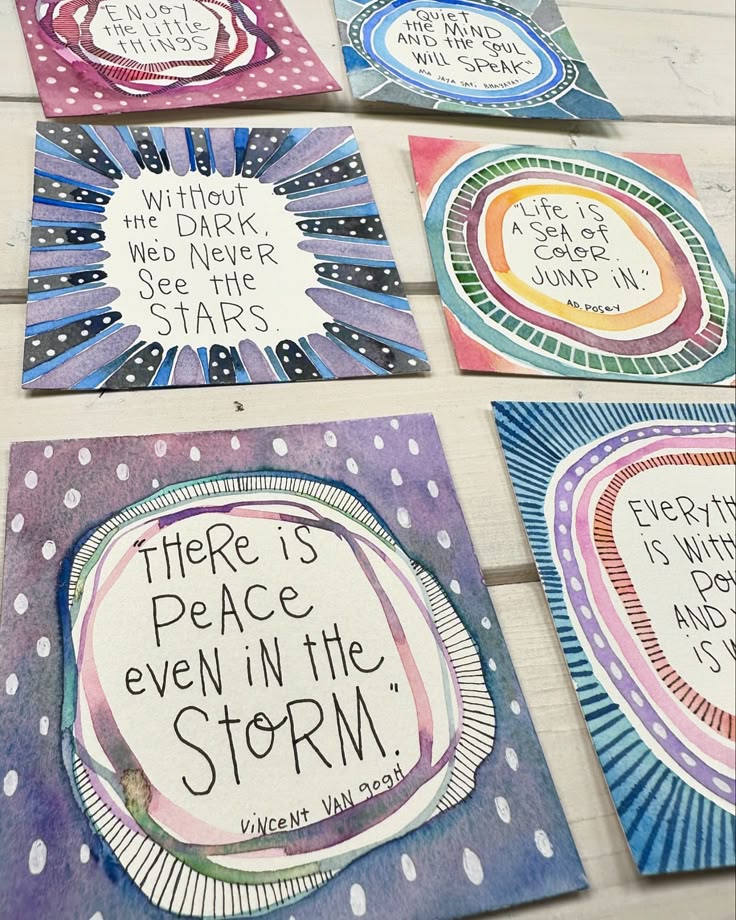 ENJOY
the Little
tHiNGS
"Quiet
tHe MiND
AND tHe SouL
WiLL SPeAK".
MA JAYA SATi BHAGAVATi
WitHout
tHe DARK,
We'D NeveR
See tHe
STARS.
"Life iS
A SeA of
CoLoR.
JUMP iN."
A.D. PoSey
"tHeRe iS
PeACe
eveN iN tHe
StoRM."
ViNCeNt VAN gogH
EVeRytH
iS WitH
Po
AND
iS